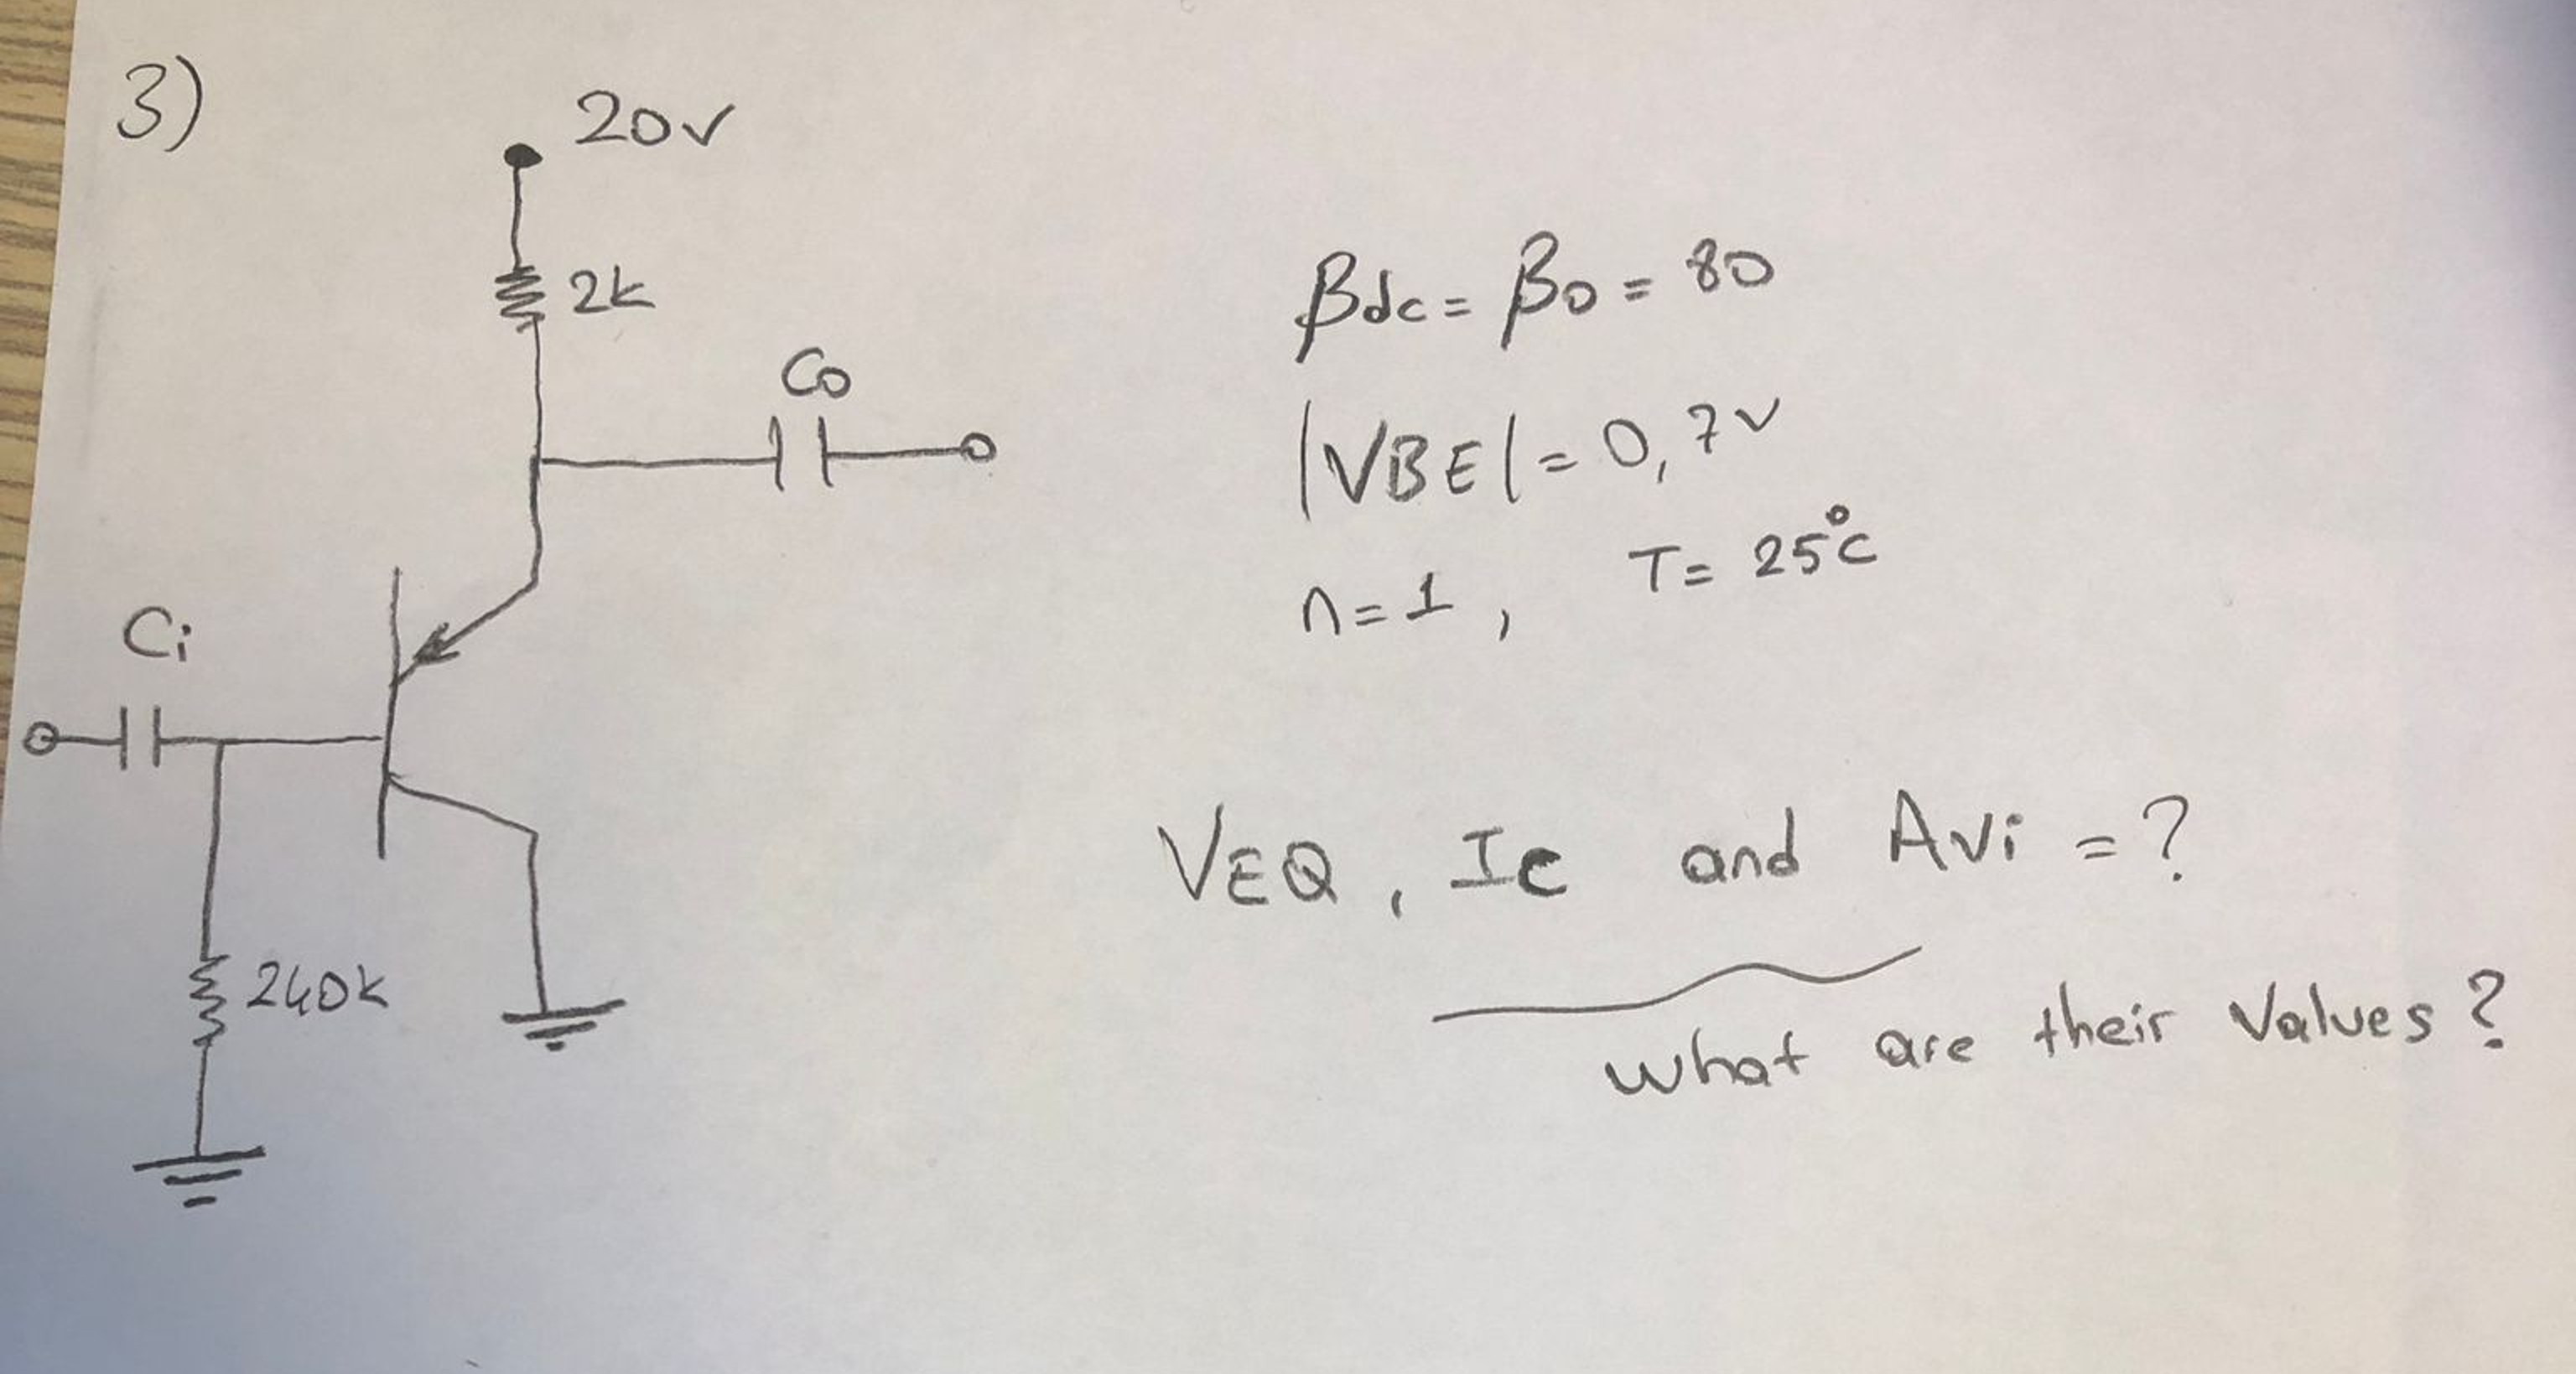 3)
20v
2k
Co
Ci
240k
βdc = βo = 80
|VBE| = 0,7v
n = 1 , T = 25°c
VEQ , Ic and Avi = ?
what are their values ?